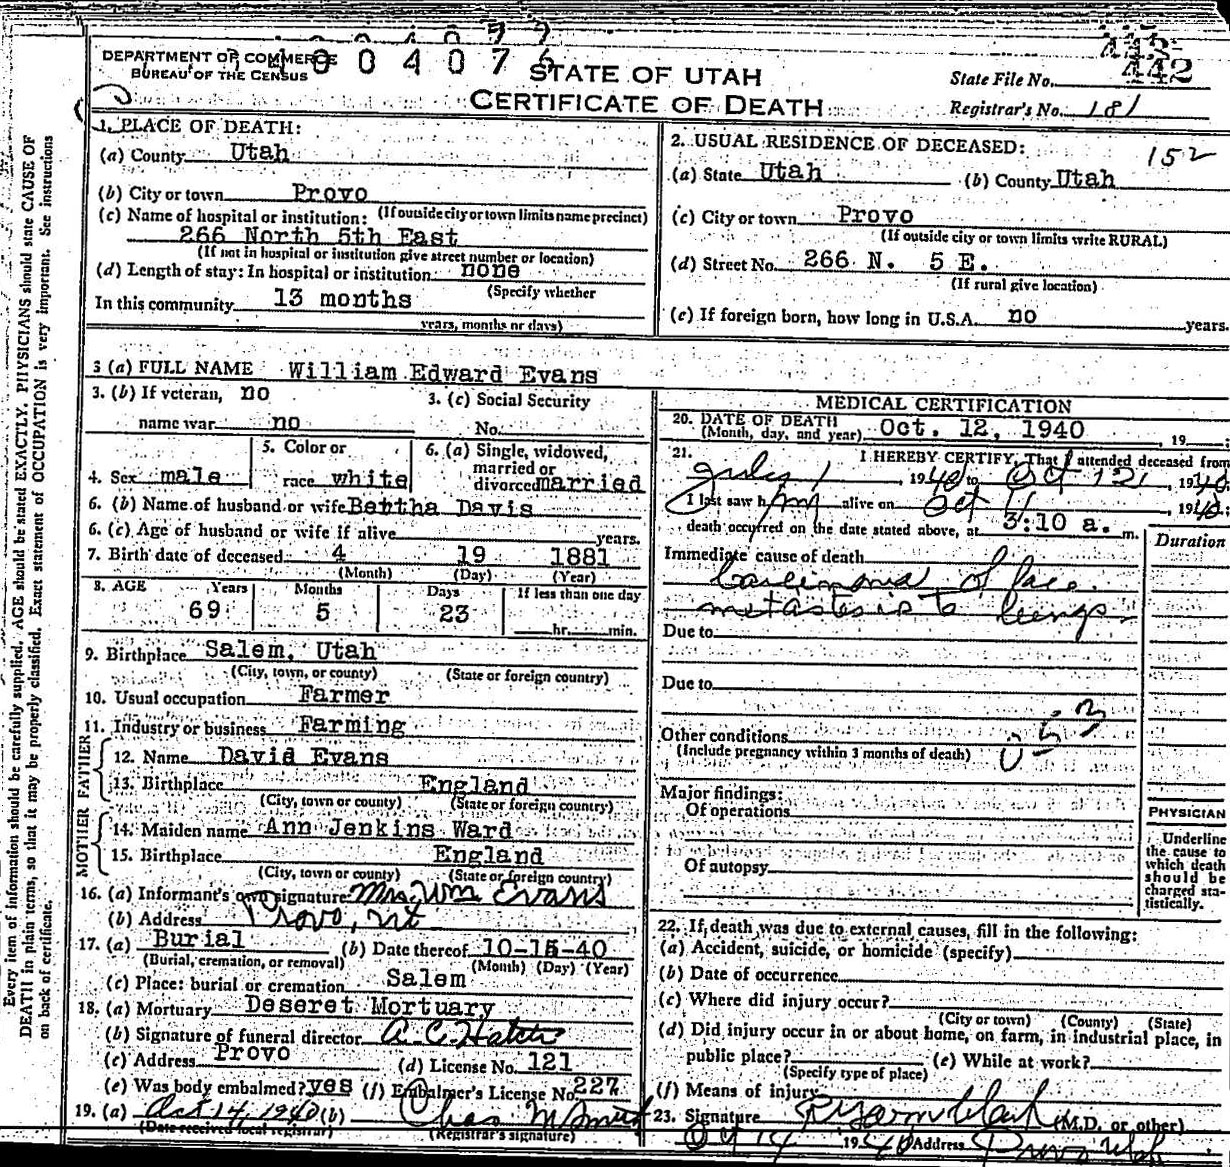 DEPARTMENT OF COMMERCE
BUREAU OF THE CENSUS
1004076
STATE OF UTAH
CERTIFICATE OF DEATH
442
State File No.
Registrar's No. 181
1. PLACE OF DEATH:
(a) County Utah
(b) City or town Provo
(If outside city or town limits name precinct)
(c) Name of hospital or institution:
266 North 5th East
(If not in hospital or institution give street number or location)
(d) Length of stay: In hospital or institution none
(Specify whether
In this community 13 months
years, months or days)
2. USUAL RESIDENCE OF DECEASED:
152
(a) State Utah (b) County Utah
(c) City or town Provo
(If outside city or town limits write RURAL)
(d) Street No. 266 N. 5 E.
(If rural give location)
(e) If foreign born, how long in U.S.A. no years.
3 (a) FULL NAME William Edward Evans
3. (b) If veteran, no
name war no
3. (c) Social Security
No.
4. Sex male
5. Color or
race white
6. (a) Single, widowed,
married or
divorced married
6. (b) Name of husband or wife Bertha Davis
6. (c) Age of husband or wife if alive years.
7. Birth date of deceased 4 19 1881
(Month) (Day) (Year)
8. AGE Years Months Days If less than one day
69 5 23 hr. min.
9. Birthplace Salem, Utah
(City, town, or county) (State or foreign country)
10. Usual occupation Farmer
11. Industry or business Farming
FATHER
12. Name David Evans
13. Birthplace England
(City, town or county) (State or foreign country)
MOTHER
14. Maiden name Ann Jenkins Ward
15. Birthplace England
(City, town or county) (State or foreign country)
16. (a) Informant's own signature Mrs. Wm Evans
(b) Address Provo, Ut
17. (a) Burial (b) Date thereof 10-15-40
(Burial, cremation, or removal) (Month) (Day) (Year)
(c) Place: burial or cremation Salem
18. (a) Mortuary Deseret Mortuary
(b) Signature of funeral director A. C. Hatch
(c) Address Provo (d) License No. 121
(e) Was body embalmed? yes (f) Embalmer's License No. 227
19. (a) Oct 14, 1940 (b) Chas M Smith
(Date received local registrar) (Registrar's signature)
MEDICAL CERTIFICATION
20. DATE OF DEATH
(Month, day, and year) Oct. 12, 1940, 19
21. I HEREBY CERTIFY, That I attended deceased from
July 1, 1940 to Oct 12, 1940
I last saw him alive on Oct 11, 1940;
death occurred on the date stated above, at 3:10 a. m.
Duration
Immediate cause of death
Carcinoma of face
metastesis to lungs
Due to
Due to
Other conditions
(Include pregnancy within 3 months of death)
053
Major findings:
Of operations
Of autopsy
PHYSICIAN
Underline
the cause to
which death
should be
charged sta-
tistically.
22. If death was due to external causes, fill in the following:
(a) Accident, suicide, or homicide (specify)
(b) Date of occurrence
(c) Where did injury occur?
(City or town) (County) (State)
(d) Did injury occur in or about home, on farm, in industrial place, in
public place? (e) While at work?
(Specify type of place)
(f) Means of injury
23. Signature (M.D. or other)
Oct 14 1940 Address Provo Utah
Every item of information should be carefully supplied. AGE should be stated EXACTLY. PHYSICIANS should state CAUSE OF
DEATH in plain terms, so that it may be properly classified. Exact statement of OCCUPATION is very important. See instructions
on back of certificate.